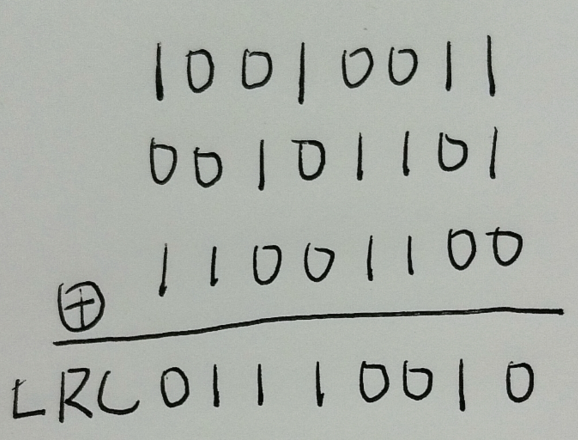 10010011
00101101
⊕ 11001100
LRC 01110010